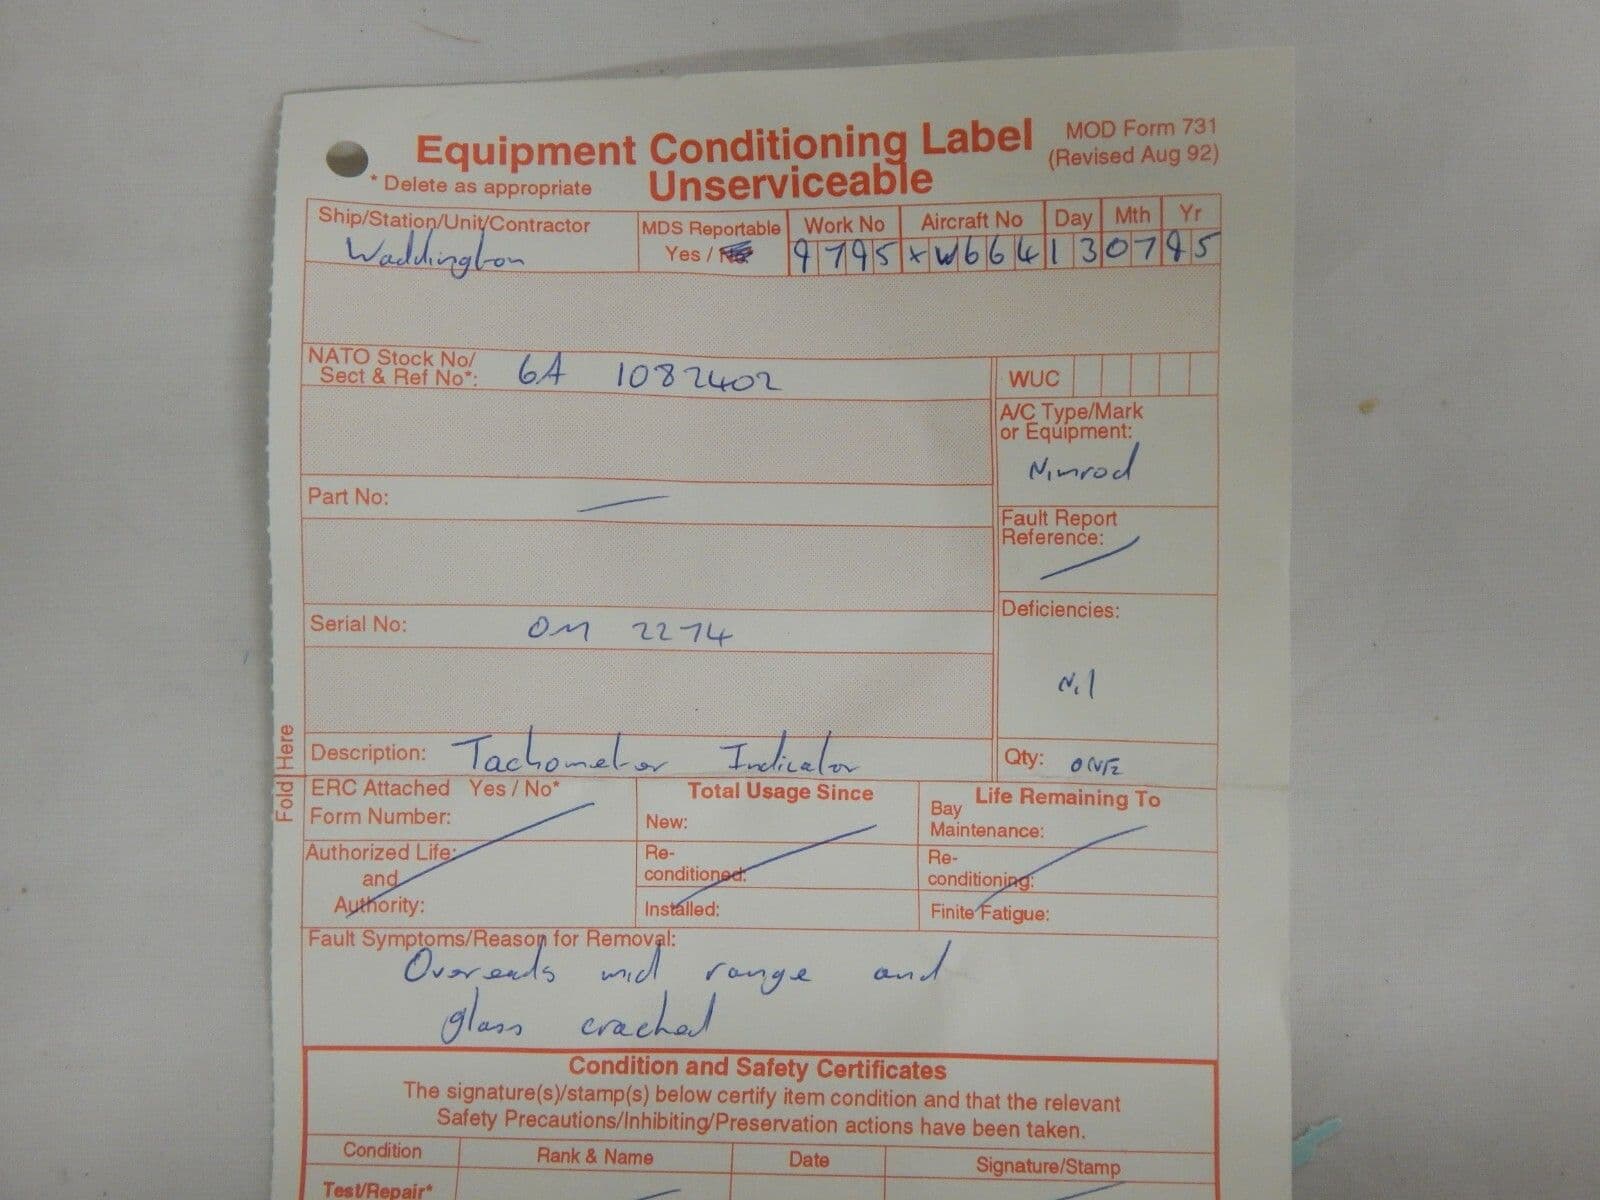 Equipment Conditioning Label
MOD Form 731
(Revised Aug 92)
* Delete as appropriate
Unserviceable
Ship/Station/Unit/Contractor
Waddington
MDS Reportable
Yes / No*
Work No
9795
Aircraft No
XW664
Day Mth Yr
13 07 95
NATO Stock No/
Sect & Ref No*: 6A 1082402
WUC
A/C Type/Mark
or Equipment:
Nimrod
Part No: —
Fault Report
Reference:
Serial No: OM 2274
Deficiencies:
Nil
Description: Tachometer Indicator
Qty: ONE
Fold Here
ERC Attached Yes / No*
Form Number:
Authorized Life:
and
Authority:
Total Usage Since
New:
Re-
conditioned:
Installed:
Life Remaining To
Bay
Maintenance:
Re-
conditioning:
Finite Fatigue:
Fault Symptoms/Reason for Removal:
Overreads mid range and
glass cracked
Condition and Safety Certificates
The signature(s)/stamp(s) below certify item condition and that the relevant
Safety Precautions/Inhibiting/Preservation actions have been taken.
Condition Rank & Name Date Signature/Stamp
Test/Repair*